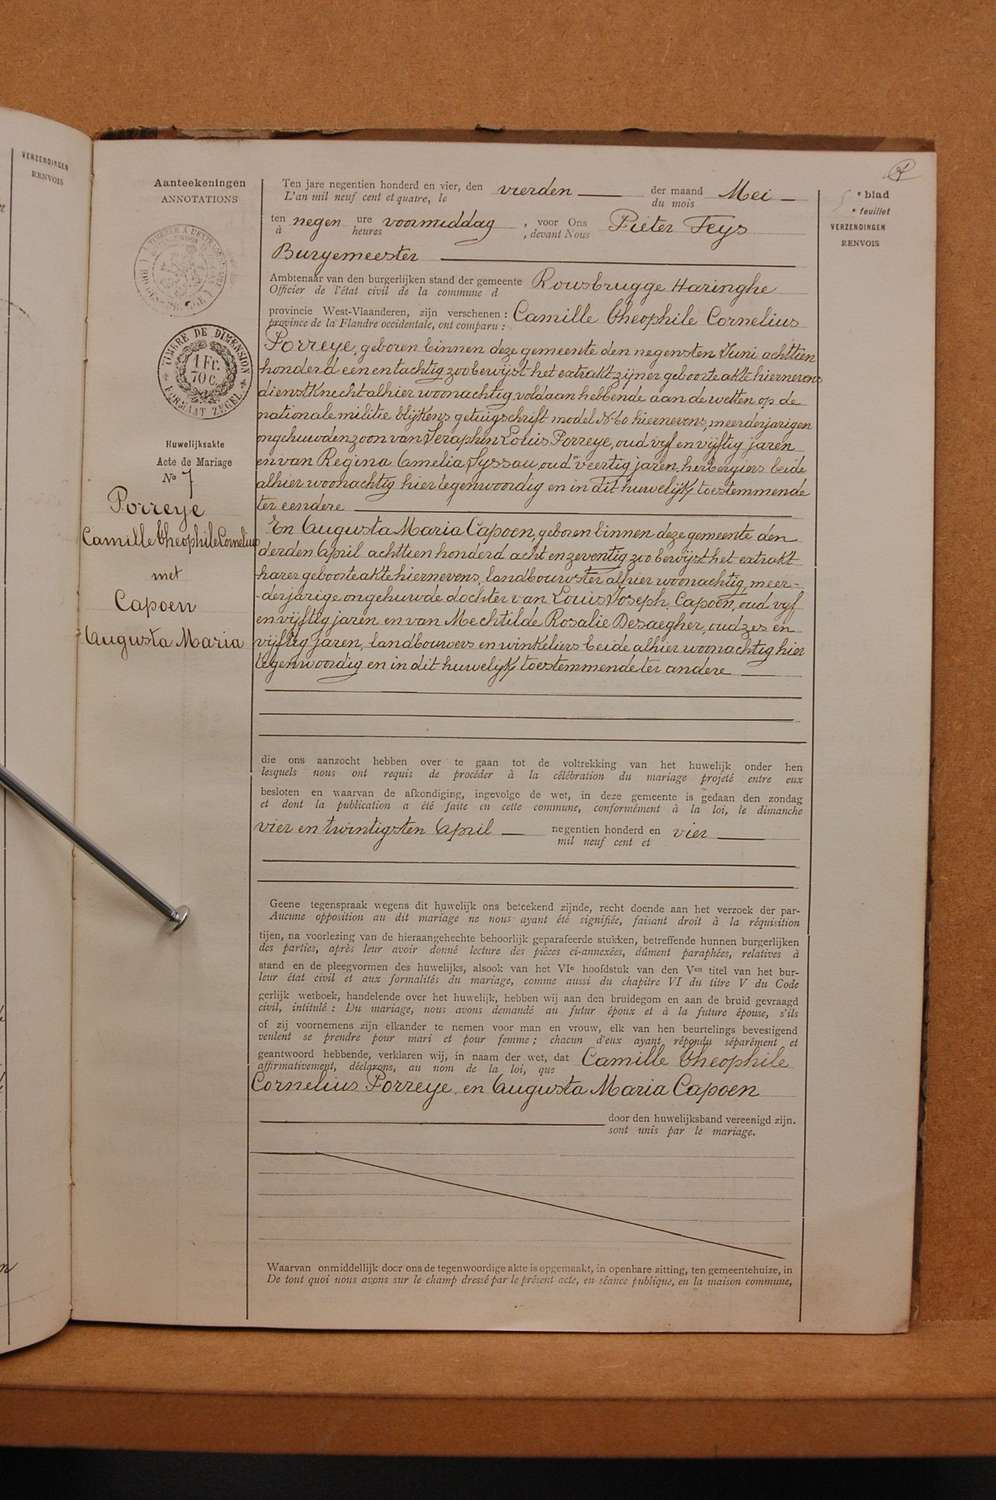 VERZENDINGEN
RENVOIS
Aanteekeningen
ANNOTATIONS
TIMBRE DE DIMENSION
1 Fr.
70 c.
FORMAAT ZEGEL
Huwelijksakte
Acte de Mariage
No 7
Porreye
Camille Theophile Cornelius
met
Capoen
Augusta Maria
Ten jare negentien honderd en vier, den vierden der maand Mei
L'an mil neuf cent et quatre, le du mois
ten negen ure voormiddag, voor Ons Pieter Feys
à heures , devant Nous
Burgemeester
Ambtenaar van den burgerlijken stand der gemeente Rousbrugge Haringhe
Officier de l'état civil de la commune d
provincie West-Vlaanderen, zijn verschenen : Camille Theophile Cornelius
province de la Flandre occidentale, ont comparu :
Porreye, geboren binnen deze gemeente den negensten Juni achttien
honderd een en tachtig zoo bewijst het extrakt zijner geboorteakte hiernevens
dienstknecht alhier woonachtig, voldaan hebbende aan de wetten op de
nationale militie blijkens getuigschrift model No 60 hiernevens, meerderjarigen
ongehuwden zoon van Seraphin Louis Porreye, oud vijf en vijftig jaren
en van Regina Amelia Syssau, oud veertig jaren, herbergiers beide
alhier woonachtig hier tegenwoordig en in dit huwelijk toestemmende
ter eendere
En Augusta Maria Capoen, geboren binnen deze gemeente den
derden April achttien honderd acht en zeventig zoo bewijst het extrakt
harer geboorteakte hiernevens, landbouwster alhier woonachtig, meer-
-derjarige ongehuwde dochter van Louis Joseph Capoen, oud vijf
en vijftig jaren en van Mechtilde Rosalie Desaegher, oud zes en
vijftig jaren, landbouwers en winkeliers beide alhier woonachtig hier
tegenwoordig en in dit huwelijk toestemmende ter andere
die ons aanzocht hebben over te gaan tot de voltrekking van het huwelijk onder hen
lesquels nous ont requis de procéder à la célébration du mariage projeté entre eux
besloten en waarvan de afkondiging, ingevolge de wet, in deze gemeente is gedaan den zondag
et dont la publication a été faite en cette commune, conformément à la loi, le dimanche
vier en twintigsten April negentien honderd en vier
mil neuf cent et
Geene tegenspraak wegens dit huwelijk ons beteekend zijnde, recht doende aan het verzoek der par-
Aucune opposition au dit mariage ne nous ayant été signifiée, faisant droit à la réquisition
tijen, na voorlezing van de hieraangehechte behoorlijk geparafeerde stukken, betreffende hunnen burgerlijken
des parties, après leur avoir donné lecture des pièces ci-annexées, dûment paraphées, relatives à
stand en de pleegvormen des huwelijks, alsook van het VIe hoofdstuk van den Ven titel van het bur-
leur état civil et aux formalités du mariage, comme aussi du chapitre VI du titre V du Code
gerlijk wetboek, handelende over het huwelijk, hebben wij aan den bruidegom en aan de bruid gevraagd
civil, intitulé : Du mariage, nous avons demandé au futur époux et à la future épouse, s'ils
of zij voornemens zijn elkander te nemen voor man en vrouw, elk van hen beurtelings bevestigend
veulent se prendre pour mari et pour femme ; chacun d'eux ayant répondu séparément et
geantwoord hebbende, verklaren wij, in naam der wet, dat Camille Theophile
affirmativement, déclarons, au nom de la loi, que
Cornelius Porreye en Augusta Maria Capoen
door den huwelijksband vereenigd zijn.
sont unis par le mariage.
Waarvan onmiddelijk door ons de tegenwoordige akte is opgemaakt, in openbare zitting, ten gemeentehuize, in
De tout quoi nous avons sur le champ dressé par le présent acte, en séance publique, en la maison commune,
5 e blad
e feuillet
VERZENDINGEN
RENVOIS